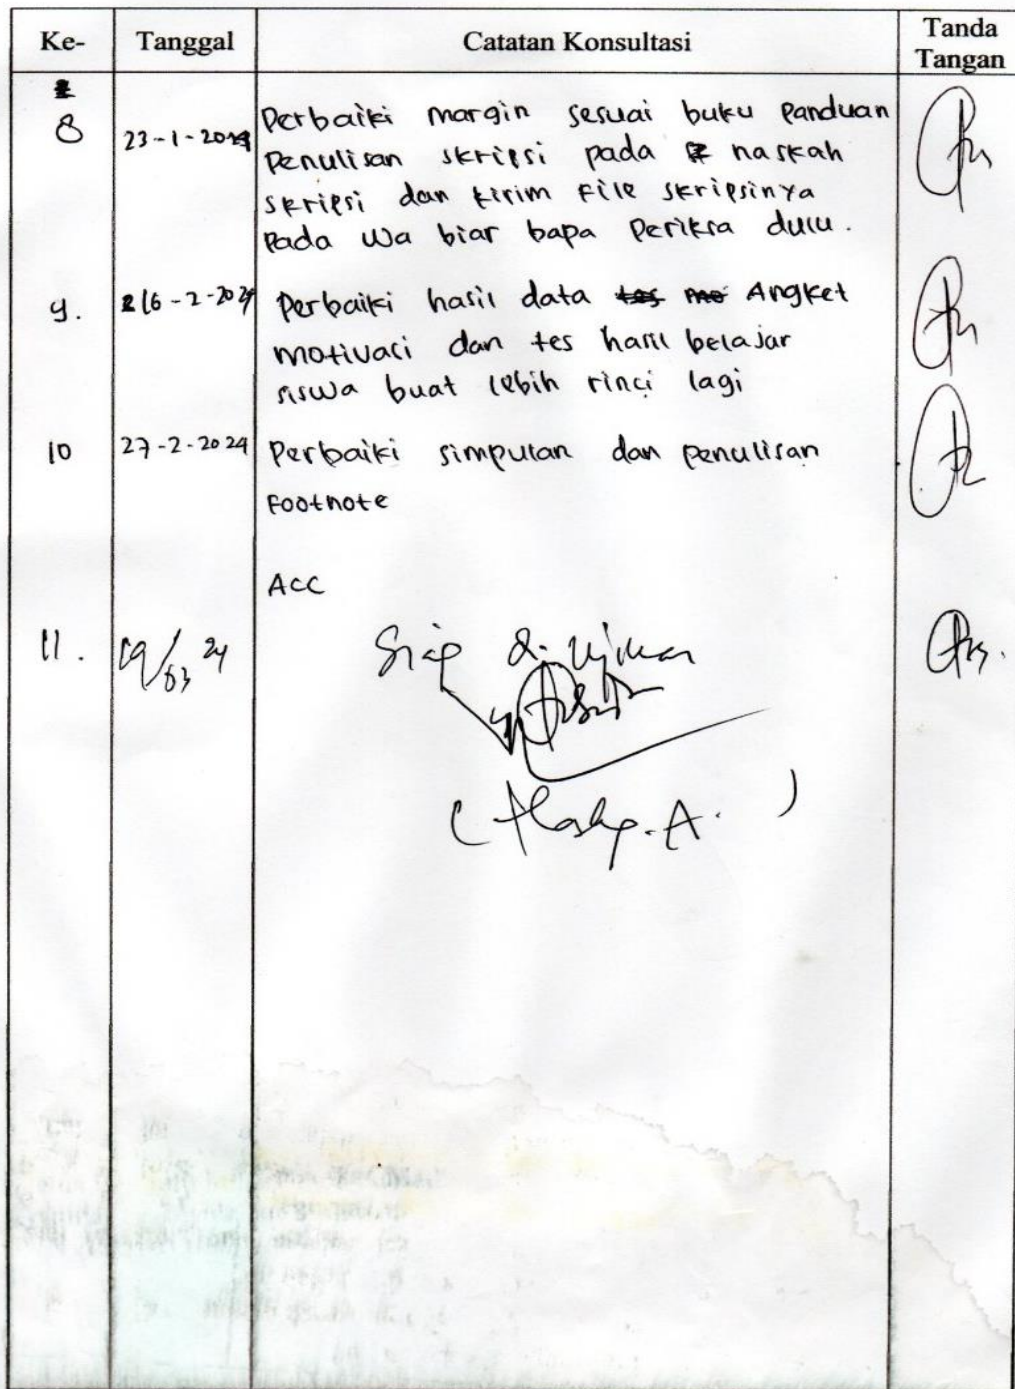 Ke- Tanggal Catatan Konsultasi Tanda Tangan
8 23-1-2024 Perbaiki margin sesuai buku panduan
penulisan skripsi pada naskah
skripsi dan kirim file skripsinya
pada Wa biar bapa periksa dulu.
9. 26-2-2024 Perbaiki hasil data Angket
motivasi dan tes hasil belajar
siswa buat lebih rinci lagi
10 27-2-2024 Perbaiki simpulan dan penulisan
Footnote
ACC
11. 09/03 24 Siap di Ujikan